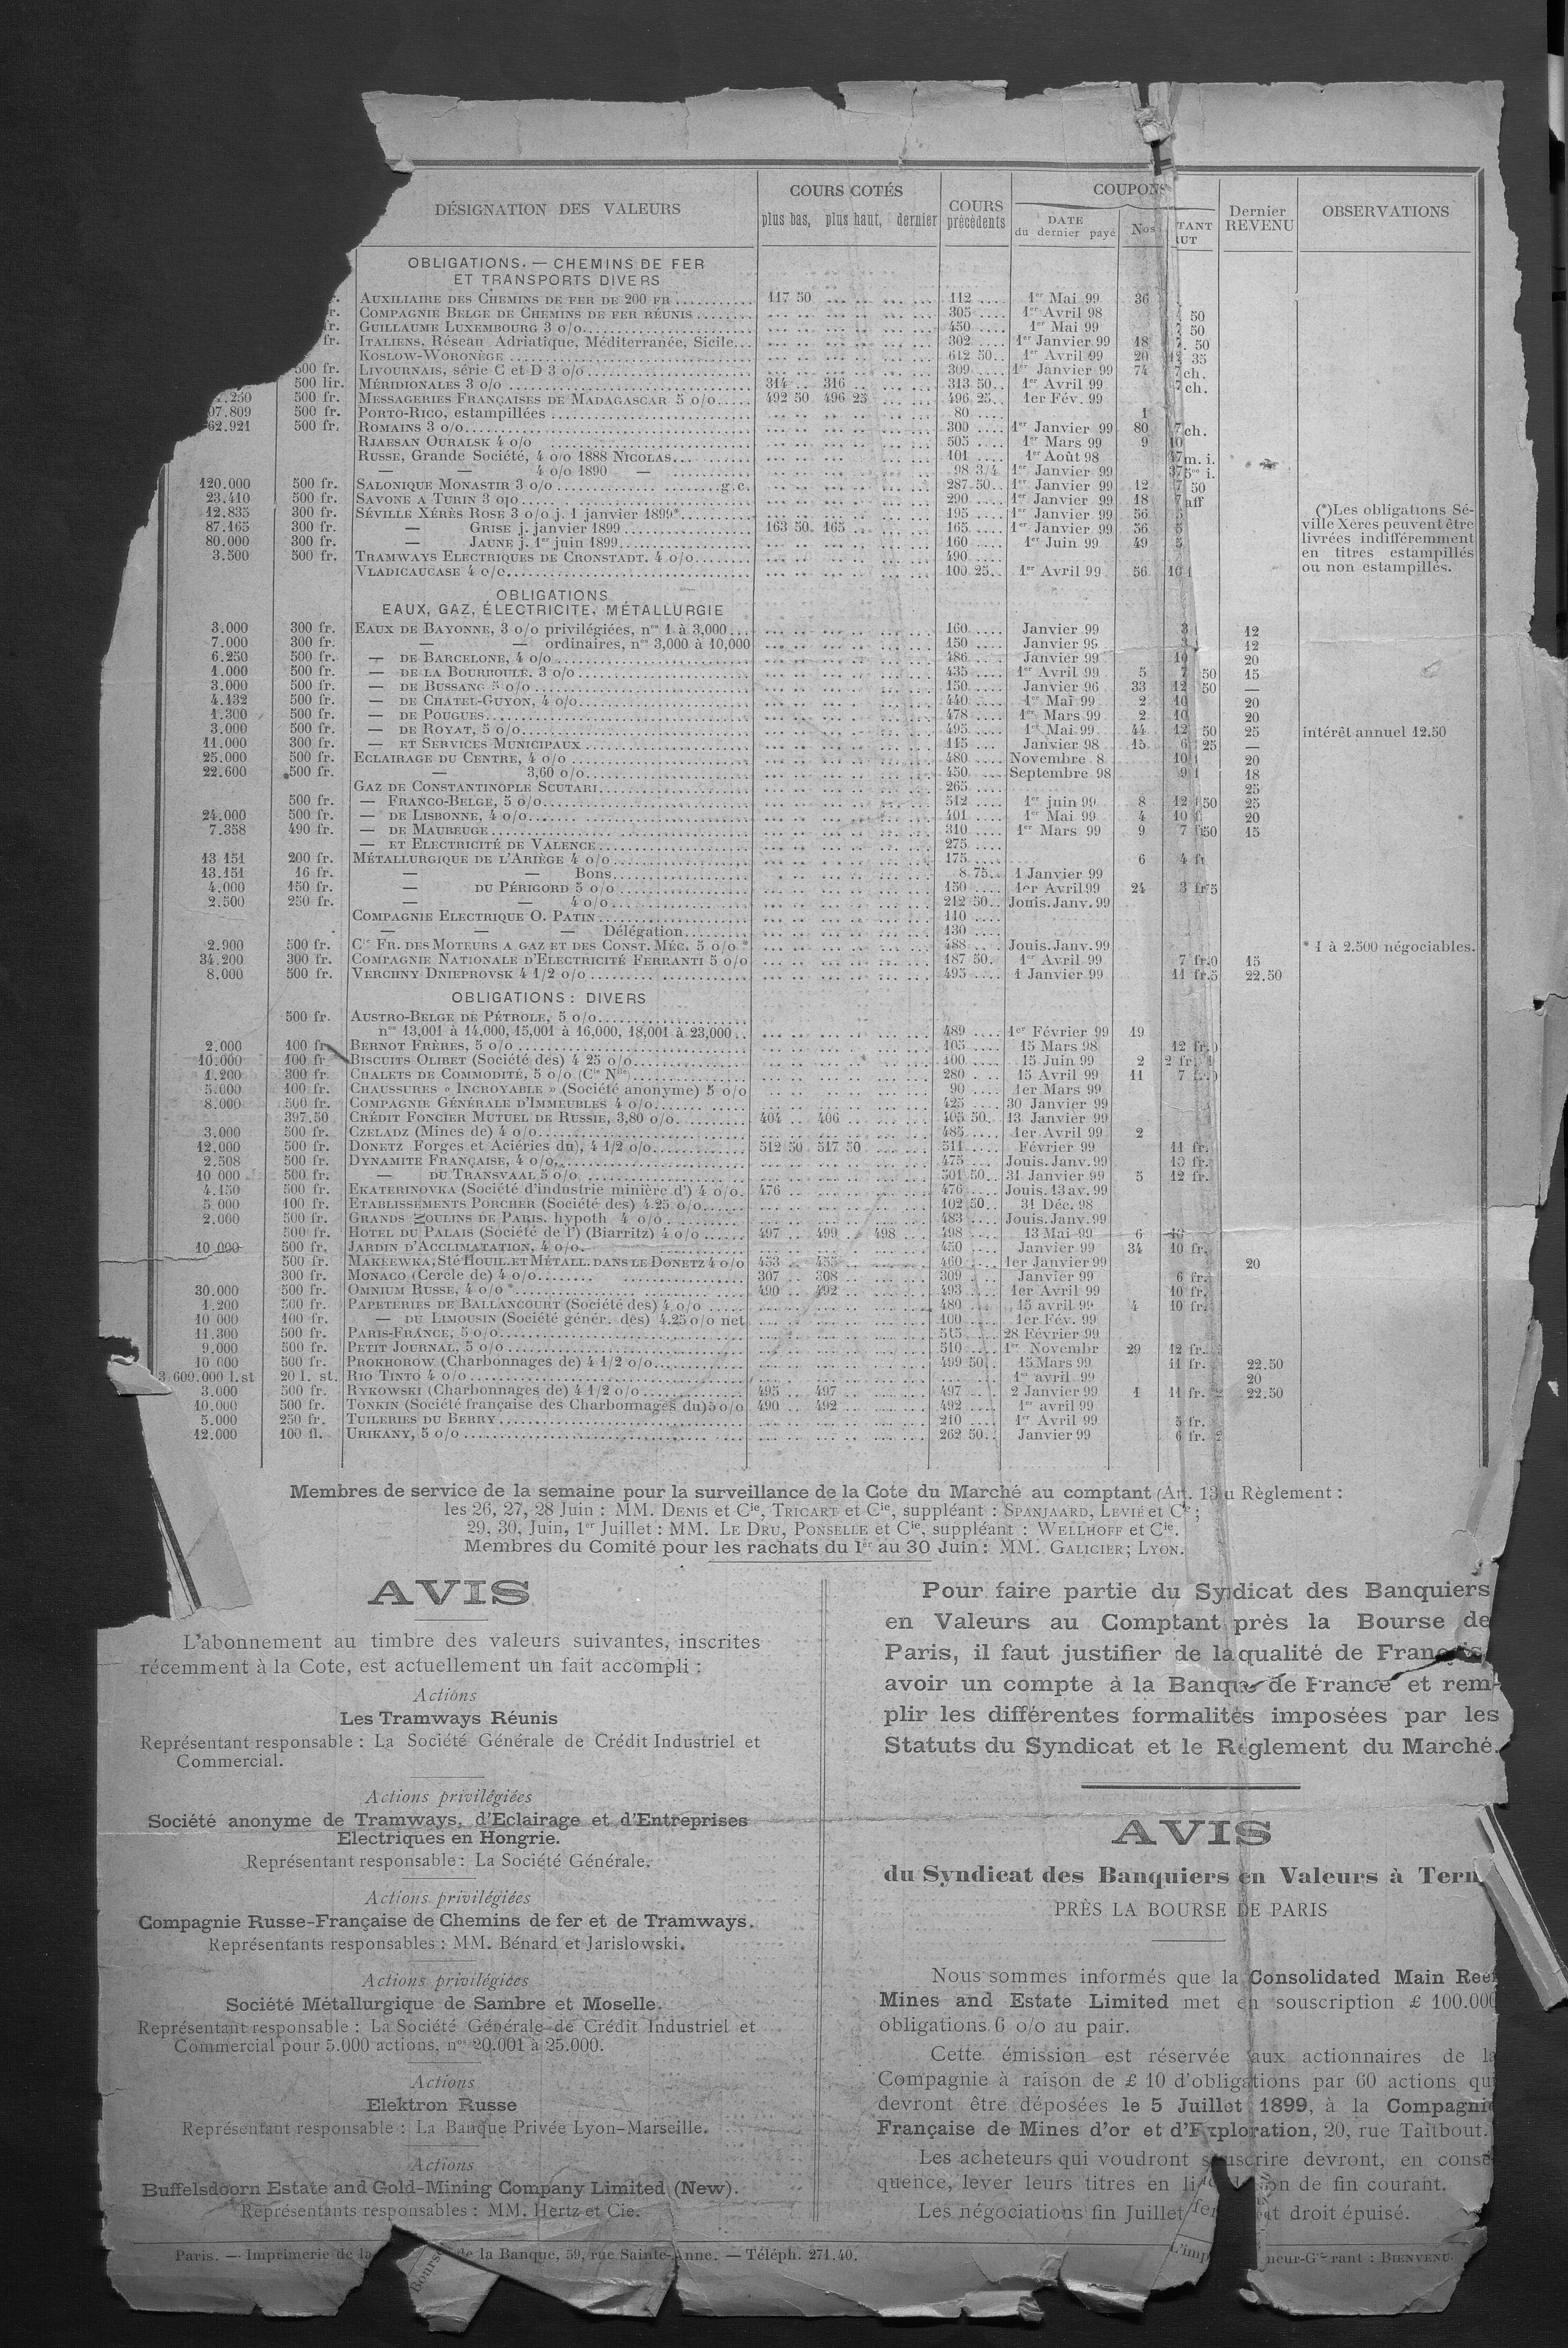 DÉSIGNATION DES VALEURS COURS COTÉS plus bas, plus haut, dernier COURS précédents COUPONS DATE du dernier payé Nos Dernier REVENU OBSERVATIONS
OBLIGATIONS. — CHEMINS DE FER
ET TRANSPORTS DIVERS
AUXILIAIRE DES CHEMINS DE FER DE 200 FR 117 50 112 1er Mai 99 36
COMPAGNIE BELGE DE CHEMINS DE FER RÉUNIS 305 1er Avril 98 50
GUILLAUME LUXEMBOURG 3 o/o 450 1er Mai 99 50
fr. ITALIENS. Réseau Adriatique, Méditerranée, Sicile 302 1er Janvier 99 18 50
KOSLOW-WORONÈGE 612 50 1er Avril 99 20 12 35
500 fr. LIVOURNAIS, série C et D 3 o/o 309 1er Janvier 99 74 7 ch.
500 lir. MÉRIDIONALES 3 o/o 314 316 313 50 1er Avril 99 7 ch.
.250 500 fr. MESSAGERIES FRANÇAISES DE MADAGASCAR 5 o/o 492 50 496 25 496 25 1er Fév. 99
07.809 500 fr. PORTO-RICO, estampillées 80 1
62.921 500 fr. ROMAINS 3 o/o 300 1er Janvier 99 80 7 ch.
RJAESAN OURALSK 4 o/o 505 1er Mars 99 9 10
RUSSE, Grande Société, 4 o/o 1888 NICOLAS 101 1er Août 98 m. i.
— — 4 o/o 1890 — 98 3/4 1er Janvier 99 i.
120.000 500 fr. SALONIQUE MONASTIR 3 o/o g.c. 287 50 1er Janvier 99 12 7 50
23.410 500 fr. SAVONE A TURIN 3 o/o 290 1er Janvier 99 18 7 aff
12.835 300 fr. SÉVILLE XÉRÈS ROSE 3 o/o j. 1 janvier 1899* 195 1er Janvier 99 56 5
87.165 300 fr. — GRISE j. janvier 1899 163 50 165 165 1er Janvier 99 56 5
80.000 300 fr. — JAUNE j. 1er juin 1899 160 1er Juin 99 49 5
3.500 500 fr. TRAMWAYS ELECTRIQUES DE CRONSTADT. 4 o/o 490
VLADICAUCASE 4 o/o 100 25 1er Avril 99 56
(*)Les obligations Sé-
ville Xérès peuvent être
livrées indifféremment
en titres estampillés
ou non estampillés.
OBLIGATIONS
EAUX, GAZ, ÉLECTRICITE, MÉTALLURGIE
3.000 300 fr. EAUX DE BAYONNE, 3 o/o privilégiées, nos 1 à 3,000 160 Janvier 99 3 12
7.000 300 fr. — — ordinaires, nos 3,000 à 10,000 150 Janvier 99 3 12
6.250 500 fr. — DE BARCELONE, 4 o/o 486 Janvier 99 10 20
1.000 500 fr. — DE LA BOURBOULE. 3 o/o 435 1er Avril 99 5 7 50 15
3.000 500 fr. — DE BUSSANG 5 o/o 150 Janvier 96 33 12 50 —
4.132 500 fr. — DE CHATEL-GUYON, 4 o/o 440 1er Mai 99 2 10 20
1.300 500 fr. — DE POUGUES 478 1er Mars 99 2 10 20
3.000 500 fr. — DE ROYAT, 5 o/o 495 1er Mai 99 44 12 50 25 intérêt annuel 12.50
11.000 300 fr. — ET SERVICES MUNICIPAUX 115 Janvier 98 15 6 25 —
25.000 500 fr. ECLAIRAGE DU CENTRE, 4 o/o 480 Novembre 8 10 20
22.600 500 fr. — 3,60 o/o 450 Septembre 98 9 18
GAZ DE CONSTANTINOPLE SCUTARI 265 25
500 fr. — FRANCO-BELGE, 5 o/o 512 1er juin 99 8 12 50 25
24.000 500 fr. — DE LISBONNE, 4 o/o 401 1er Mai 99 4 10 20
7.358 490 fr. — DE MAUBEUGE 310 1er Mars 99 9 7 50 15
— ET ELECTRICITÉ DE VALENCE 275
13 151 200 fr. MÉTALLURGIQUE DE L'ARIÈGE 4 o/o 175 6 4 fr
13.151 16 fr. — — Bons 8 75 1 Janvier 99
4.000 150 fr. — DU PÉRIGORD 5 o/o 150 1er Avril 99 24 3 fr 75
2.500 250 fr. — — 4 o/o 212 50 Jouis. Janv. 99
COMPAGNIE ELECTRIQUE O. PATIN 110
— — — Délégation 130
2.900 500 fr. Cie FR. DES MOTEURS A GAZ ET DES CONST. MÉC. 5 o/o * 488 Jouis. Janv. 99 * 1 à 2.500 négociables.
34.200 300 fr. COMPAGNIE NATIONALE D'ELECTRICITÉ FERRANTI 5 o/o 187 50 1er Avril 99 7 fr. 15
8.000 500 fr. VERCHNY DNIEPROVSK 4 1/2 o/o 495 1 Janvier 99 11 fr. 22.50
OBLIGATIONS : DIVERS
500 fr. AUSTRO-BELGE DE PÉTROLE, 5 o/o
nos 13,001 à 14,000, 15,001 à 16,000, 18,001 à 23,000 489 1er Février 99 19
2.000 100 fr. BERNOT FRÈRES, 5 o/o 105 15 Mars 98 12 fr.
10.000 100 fr BISCUITS OLIBET (Société des) 4 25 o/o 100 15 Juin 99 2 2 fr.
1.200 300 fr CHALETS DE COMMODITÉ, 5 o/o (Cie Nlle) 280 15 Avril 99 11 7
5.000 100 fr. CHAUSSURES « INCROYABLE » (Société anonyme) 5 o/o 90 1er Mars 99
8.000 500 fr. COMPAGNIE GÉNÉRALE D'IMMEUBLES 4 o/o 425 30 Janvier 99
397.50 CRÉDIT FONCIER MUTUEL DE RUSSIE, 3,80 o/o 404 406 405 50 13 Janvier 99
3.000 500 fr. CZELADZ (Mines de) 4 o/o 485 1er Avril 99 2
12.000 500 fr. DONETZ Forges et Aciéries du), 4 1/2 o/o 512 50 517 50 511 Février 99 11 fr.
2.508 500 fr. DYNAMITE FRANÇAISE, 4 o/o 475 Jouis. Janv. 99 10 fr.
10 000 500 fr. — DU TRANSVAAL 5 o/o 501 50 31 Janvier 99 5 12 fr.
4.150 500 fr. EKATERINOVKA (Société d'industrie minière d') 4 o/o 476 476 Jouis. 13 av. 99
5 000 100 fr. ETABLISSEMENTS PORCHER (Société des) 4.25 o/o 102 50 31 Déc. 98
2.000 500 fr. GRANDS MOULINS DE PARIS. hypoth 4 o/o 483 Jouis. Janv. 99
500 fr. HOTEL DU PALAIS (Société de l') (Biarritz) 4 o/o 497 499 498 498 13 Mai 99 6 10
10 000 500 fr. JARDIN D'ACCLIMATATION, 4 o/o 450 Janvier 99 34 10 fr.
500 fr. MAKEEWKA, Sté HOUIL. ET MÉTALL. DANS LE DONETZ 4 o/o 453 455 460 1er Janvier 99 20
300 fr. MONACO (Cercle de) 4 o/o 307 308 309 Janvier 99 6 fr.
30.000 500 fr. OMNIUM RUSSE, 4 o/o * 490 492 493 1er Avril 99 10 fr.
1.200 500 fr. PAPETERIES DE BALLANCOURT (Société des) 4 o/o 480 15 avril 99 4 10 fr.
10 000 100 fr. — DU LIMOUSIN (Société génér. des) 4.25 o/o net 100 1er Fév. 99
11.300 500 fr. PARIS-FRANCE, 5 o/o 515 28 Février 99
9.000 500 fr. PETIT JOURNAL, 5 o/o 510 1er Novembr 29 12 fr.
10 000 500 fr. PROKHOROW (Charbonnages de) 4 1/2 o/o 499 50 15 Mars 99 11 fr. 22.50
3 600.000 l.st 20 l. st. RIO TINTO 4 o/o 1er avril 99 20
3.000 500 fr. RYKOWSKI (Charbonnages de) 4 1/2 o/o 495 497 497 2 Janvier 99 1 11 fr. 22.50
10.000 500 fr. TONKIN (Société française des Charbonnages du) 5 o/o 490 492 492 1er avril 99
5.000 250 fr. TUILERIES DU BERRY 210 1er Avril 99 5 fr.
12.000 100 fl. URIKANY, 5 o/o 262 50 Janvier 99 6 fr.
Membres de service de la semaine pour la surveillance de la Cote du Marché au comptant (Art. 13 u Règlement :
les 26, 27, 28 Juin : MM. DENIS et Cie, TRICART et Cie, suppléant : SPANJAARD, LEVIÉ et Cie ;
29, 30, Juin, 1er Juillet : MM. LE DRU, PONSELLE et Cie, suppléant : WELLHOFF et Cie.
Membres du Comité pour les rachats du 1er au 30 Juin : MM. GALICIER ; LYON.
AVIS
L'abonnement au timbre des valeurs suivantes, inscrites
récemment à la Cote, est actuellement un fait accompli :
Actions
Les Tramways Réunis
Représentant responsable : La Société Générale de Crédit Industriel et
Commercial.
Actions privilégiées
Société anonyme de Tramways, d'Eclairage et d'Entreprises
Electriques en Hongrie.
Représentant responsable : La Société Générale.
Actions privilégiées
Compagnie Russe-Française de Chemins de fer et de Tramways.
Représentants responsables : MM. Bénard et Jarislowski.
Actions privilégiées
Société Métallurgique de Sambre et Moselle.
Représentant responsable : La Société Générale de Crédit Industriel et
Commercial pour 5.000 actions, nos 20.001 à 25.000.
Actions
Elektron Russe
Représentant responsable : La Banque Privée Lyon-Marseille.
Actions
Buffelsdoorn Estate and Gold-Mining Company Limited (New).
Représentants responsables : MM. Hertz et Cie.
Pour faire partie du Syndicat des Banquiers
en Valeurs au Comptant près la Bourse de
Paris, il faut justifier de la qualité de Français,
avoir un compte à la Banque de France et rem-
plir les différentes formalités imposées par les
Statuts du Syndicat et le Règlement du Marché.
AVIS
du Syndicat des Banquiers en Valeurs à Term
PRÈS LA BOURSE DE PARIS
Nous sommes informés que la Consolidated Main Reef
Mines and Estate Limited met en souscription £ 100.000
obligations 6 o/o au pair.
Cette émission est réservée aux actionnaires de la
Compagnie à raison de £ 10 d'obligations par 60 actions qui
devront être déposées le 5 Juillet 1899, à la Compagnie
Française de Mines d'or et d'Exploration, 20, rue Taitbout.
Les acheteurs qui voudront souscrire devront, en consé
quence, lever leurs titres en li on de fin courant.
Les négociations fin Juillet fer t droit épuisé.
Paris. — Imprimerie de la Bourse de la Banque, 59, rue Sainte-Anne. — Téléph. 271.40. L'imp neur-Gérant : BIENVENU